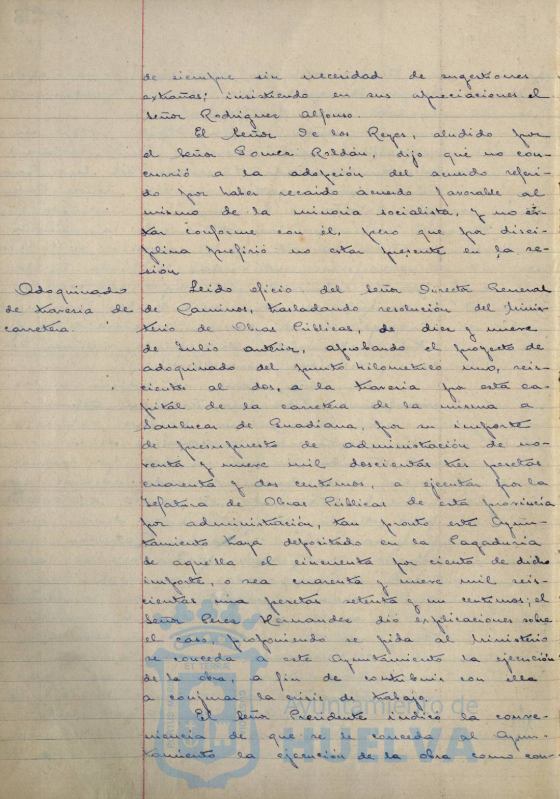 de siempre sin necesidad de sugestiones
extrañas; insistiendo en sus apreciaciones el
Señor Rodriguez Alfonso.
El Señor De los Reyes, aludido por
el Señor Ponce Roldán, dijo que no con-
currió a la adopción del acuerdo referi-
do por haber recaido acuerdo favorable al
mismo de la minoria socialista, y no es-
tar conforme con él, pero que por disci-
plina prefirió no estar presente en la se-
sión
Adoquinado
de travesia de
carretera.
Leido oficio del Señor Director General
de Caminos, trasladando resolución del Minis-
terio de Obras Públicas, de diez y nueve
de Julio anterior, aprobando el proyecto de
adoquinado del punto kilometrico uno, seis-
cientos al dos, a la travesia por esta ca-
pital de la carretera de la misma a
Sanlucar de Guadiana, por su importe
de presupuesto de administración de no-
venta y nueve mil doscientas tres pesetas
cuarenta y dos centimos, a ejecutar por la
Jefatura de Obras Públicas de esta provincia
por administración, tan pronto este Ayun-
tamiento haya depositado en la Pagaduria
de aquella el cincuenta por ciento de dicho
importe, o sea cuarenta y nueve mil seis-
cientas una pesetas setenta y un centimos; el
Señor Perez Hernandez dió explicaciones sobre
el caso, proponiendo se pida al Ministerio
se conceda a este Ayuntamiento la ejecución
de la obra, a fin de contribuir con ella
a conjurar la crisis de trabajo.
El Señor Presidente indicó la conve-
niencia de que se le conceda al Ayun-
tamiento la ejecución de la obra como con-
Ayuntamiento de
HUELVA